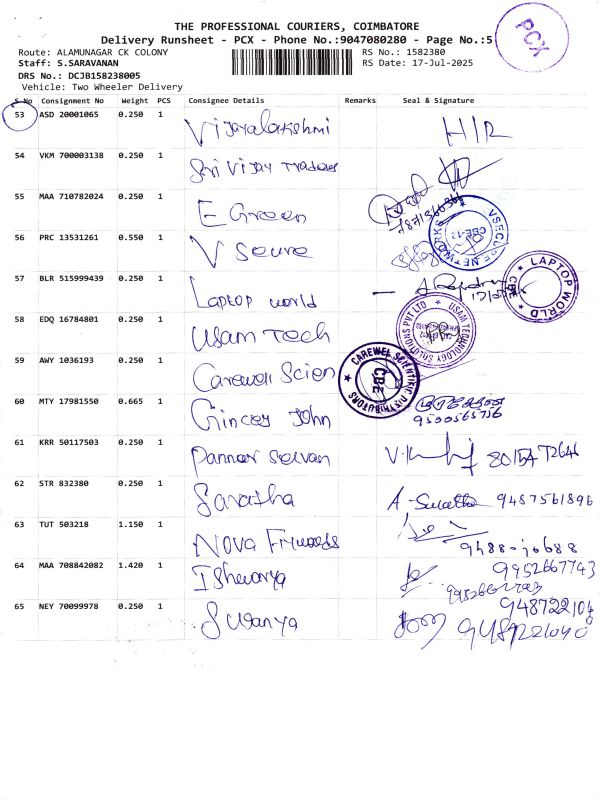 THE PROFESSIONAL COURIERS, COIMBATORE
Delivery Runsheet - PCX - Phone No.:9047080280 - Page No.:5
PCX
Route: ALAMUNAGAR CK COLONY
RS No.: 1582380
Staff: S.SARAVANAN
RS Date: 17-Jul-2025
DRS No.: DCJB158238005
Vehicle: Two Wheeler Delivery
S.No Consignment No Weight PCS Consignee Details Remarks Seal & Signature
53 ASD 20001065 0.250 1 Vijayalakshmi H/R
54 VKM 700003138 0.250 1 Sri Vijay Traders
55 MAA 710782024 0.250 1 E Green
56 PRC 13531261 0.550 1 V Seure
VSECURE NETWORKS CBE-12
57 BLR 515999439 0.250 1 Laptop world
LAPTOP WORLD CBE
58 EDQ 16784801 0.250 1 Usam Tech
USAM TECHNOLOGY SOLUTIONS PVT LTD
59 AWY 1036193 0.250 1 Carewell Scien
CAREWEL SCIENTIFIC DISTRIBUTORS CBE
60 MTY 17981550 0.665 1 Gincey John 9500565756
61 KRR 50117503 0.250 1 Pannar Selvan
62 STR 832380 0.250 1 9487561896
63 TUT 503218 1.150 1 Nova
64 MAA 708842082 1.420 1 Ishwarya 9952667743
65 NEY 70099978 0.250 1 Suganya